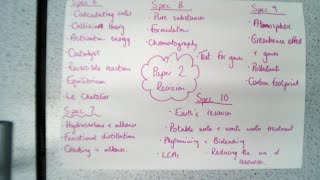 Spec 6
• Calculating rates
• Collision theory
• Activation energy
• Catalyst
• Reversible reactions
• Equilibrium
• Le Chatelier
Spec 7
• Hydrocarbons + alkanes
• Fractional distillation
• Cracking + alkenes
Spec 8
• Pure substances
• Formulation
• Chromatography
• Test for gases
Paper 2
Revision
Spec 9
• Atmosphere
• Greenhouse effect
+ gases
• Pollutants
• Carbon footprint
Spec 10
• Earth's resources
• Potable water + waste water treatment
• Phytomining + Bioleaching
• LCA's
• Reducing the use of
resources